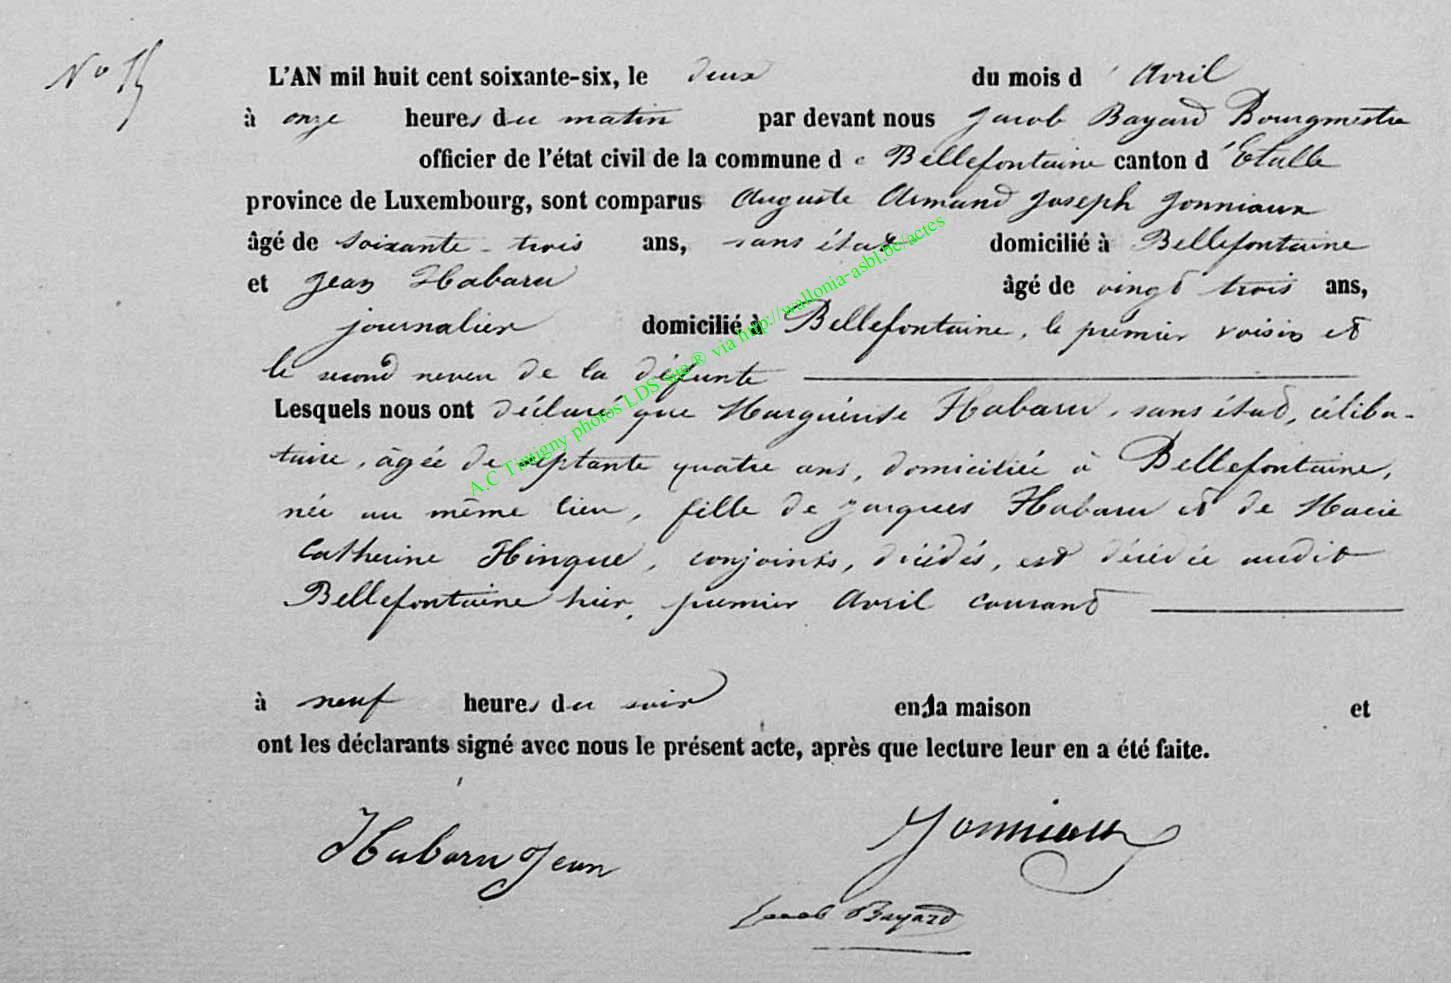 N° 15
L'AN mil huit cent soixante-six, le deux du mois d'Avril
à onze heures du matin par devant nous Jacob Bayard Bourgmestre
officier de l'état civil de la commune de Bellefontaine canton d'Etalle
province de Luxembourg, sont comparus Auguste Armand Joseph Jonniaux
âgé de soixante-trois ans, sans état domicilié à Bellefontaine
et Jean Habaru âgé de vingt trois ans,
journalier domicilié à Bellefontaine, le premier voisin et
le second neveu de la défunte
Lesquels nous ont déclaré que Marguerite Habaru, sans état, céliba-
taire, âgée de septante quatre ans, domiciliée à Bellefontaine,
née au même lieu, fille de Jacques Habaru et de Marie
Catherine Hingue, conjoints, décédés, est décédée audit
Bellefontaine hier, premier Avril courant
à neuf heures du soir en la maison et
ont les déclarants signé avec nous le présent acte, après que lecture leur en a été faite.
Habaru Jean Jonniaux
Jacob Bayard
A.C Tintigny photos LDS site ® via http://wallonia-asbl.be/actes